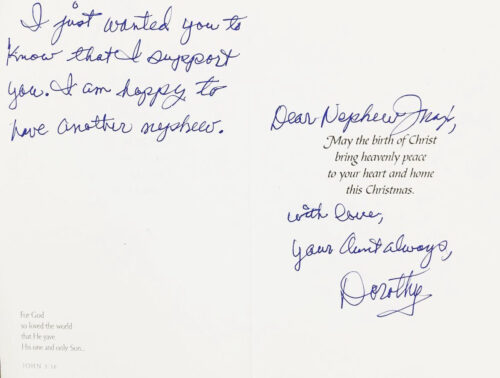 I just wanted you to
know that I support
you. I am happy to
have another nephew.
For God
so loved the world
that He gave
His one and only Son...
JOHN 3:16
Dear Nephew Max,
May the birth of Christ
bring heavenly peace
to your heart and home
this Christmas.
with love,
your Aunt always,
Dorothy